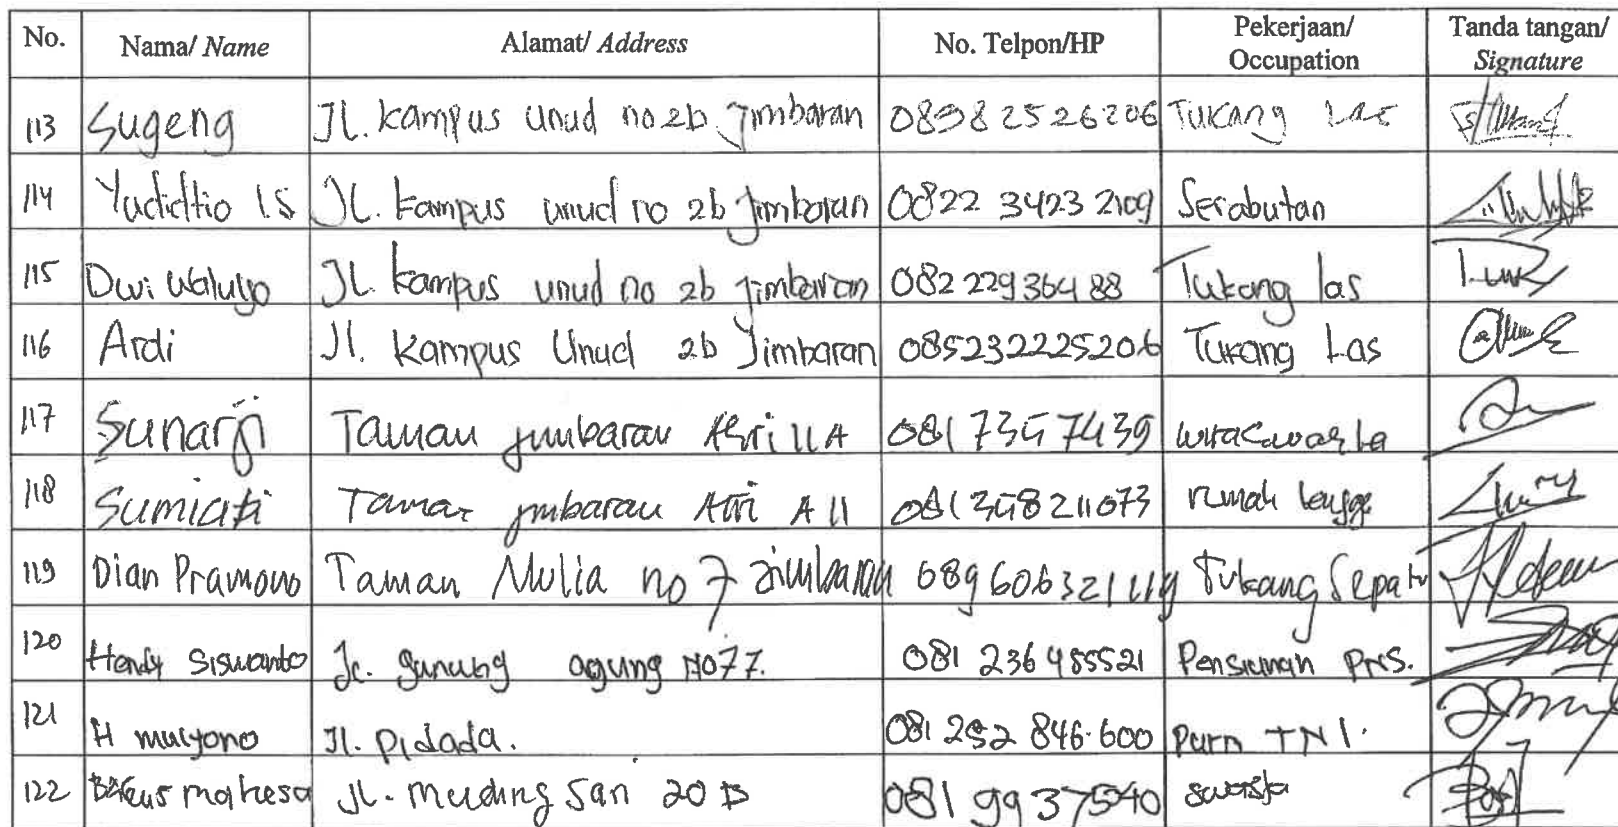 No. Nama/ Name Alamat/ Address No. Telpon/HP Pekerjaan/ Occupation Tanda tangan/ Signature
113 Sugeng Jl. kampus unud no 2b Jimbaran 08982526206 Tukang Las
114 Yudidtio I.S Jl. kampus unud no 2b Jimbaran 0822 3423 2109 Serabutan
115 Dwi Waluyo Jl. kampus unud no 2b Jimbaran 082 229364 88 Tukang las
116 Ardi Jl. Kampus Unud 2b Jimbaran 085232225206 Tukang Las
117 Sunarji Taman jimbaran Asri 11A 081 7357439 wiraswasta
118 Sumiati Taman jimbaran Asri A 11 081358211073 rumah tangga
119 Dian Pramono Taman Mulia no 7 Jimbaran 089606321119 Tukang Sepatu
120 Hendy Siswanto Jl. gunung agung No 77. 081 236 485521 Pensiunan PNS.
121 H mulyono Jl. Pidada. 081 252 846.600 Purn TNI.
122 Bagus mahesa Jl. Muding Sari 20 B 081 9937540 swasta